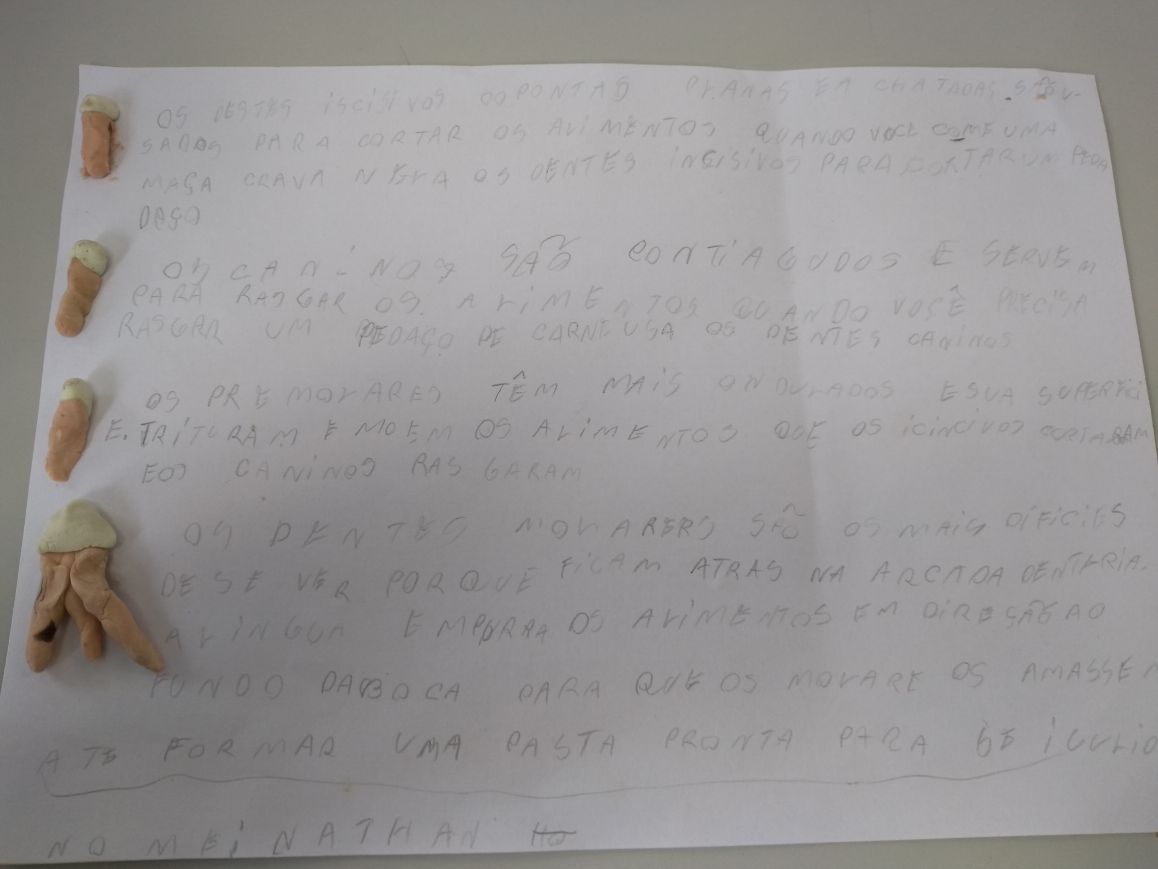 OS DESTES ISCISIVOS OOPONTAS PLANAS EA CHATADAS. SÃOU-
SADOS PARA CORTAR OS ALIMENTOS QUANDO VOCE COME UMA
MAÇA CRAVA NELA OS DENTES INCISIVOS PARA CORTAR UM PEDA
DAÇO
OS CANINOS SÃO PONTIAGUDOS E SERVEM
PARA RASGAR OS ALIMENTOS QUANDO VOCÊ PRECISA
RASGAR UM PEDAÇO DE CARNE USA OS DENTES CANINOS
OS PREMOLARES TÊM MAIS ONDULADOS ESUA SUPERFICI
E. TRITURAM E MOEM OS ALIMENTOS QUE OS ICINCIVOS CORTARAM
EOS CANINOS RASGARAM
OS DENTES MOLARERS SÃO OS MAIS DIFICIES
DE SE VER PORQUE FICAM ATRAS NA ARCADA DENTARIA.
A LINGUA EMPURRA OS ALIMENTOS EM DIREÇÃO AO
FUNDO DABOCA PARA QUE OS MOLARE OS AMASSEM
ATE FORMAR UMA PASTA PRONTA PARA
NOMEI NATHAN